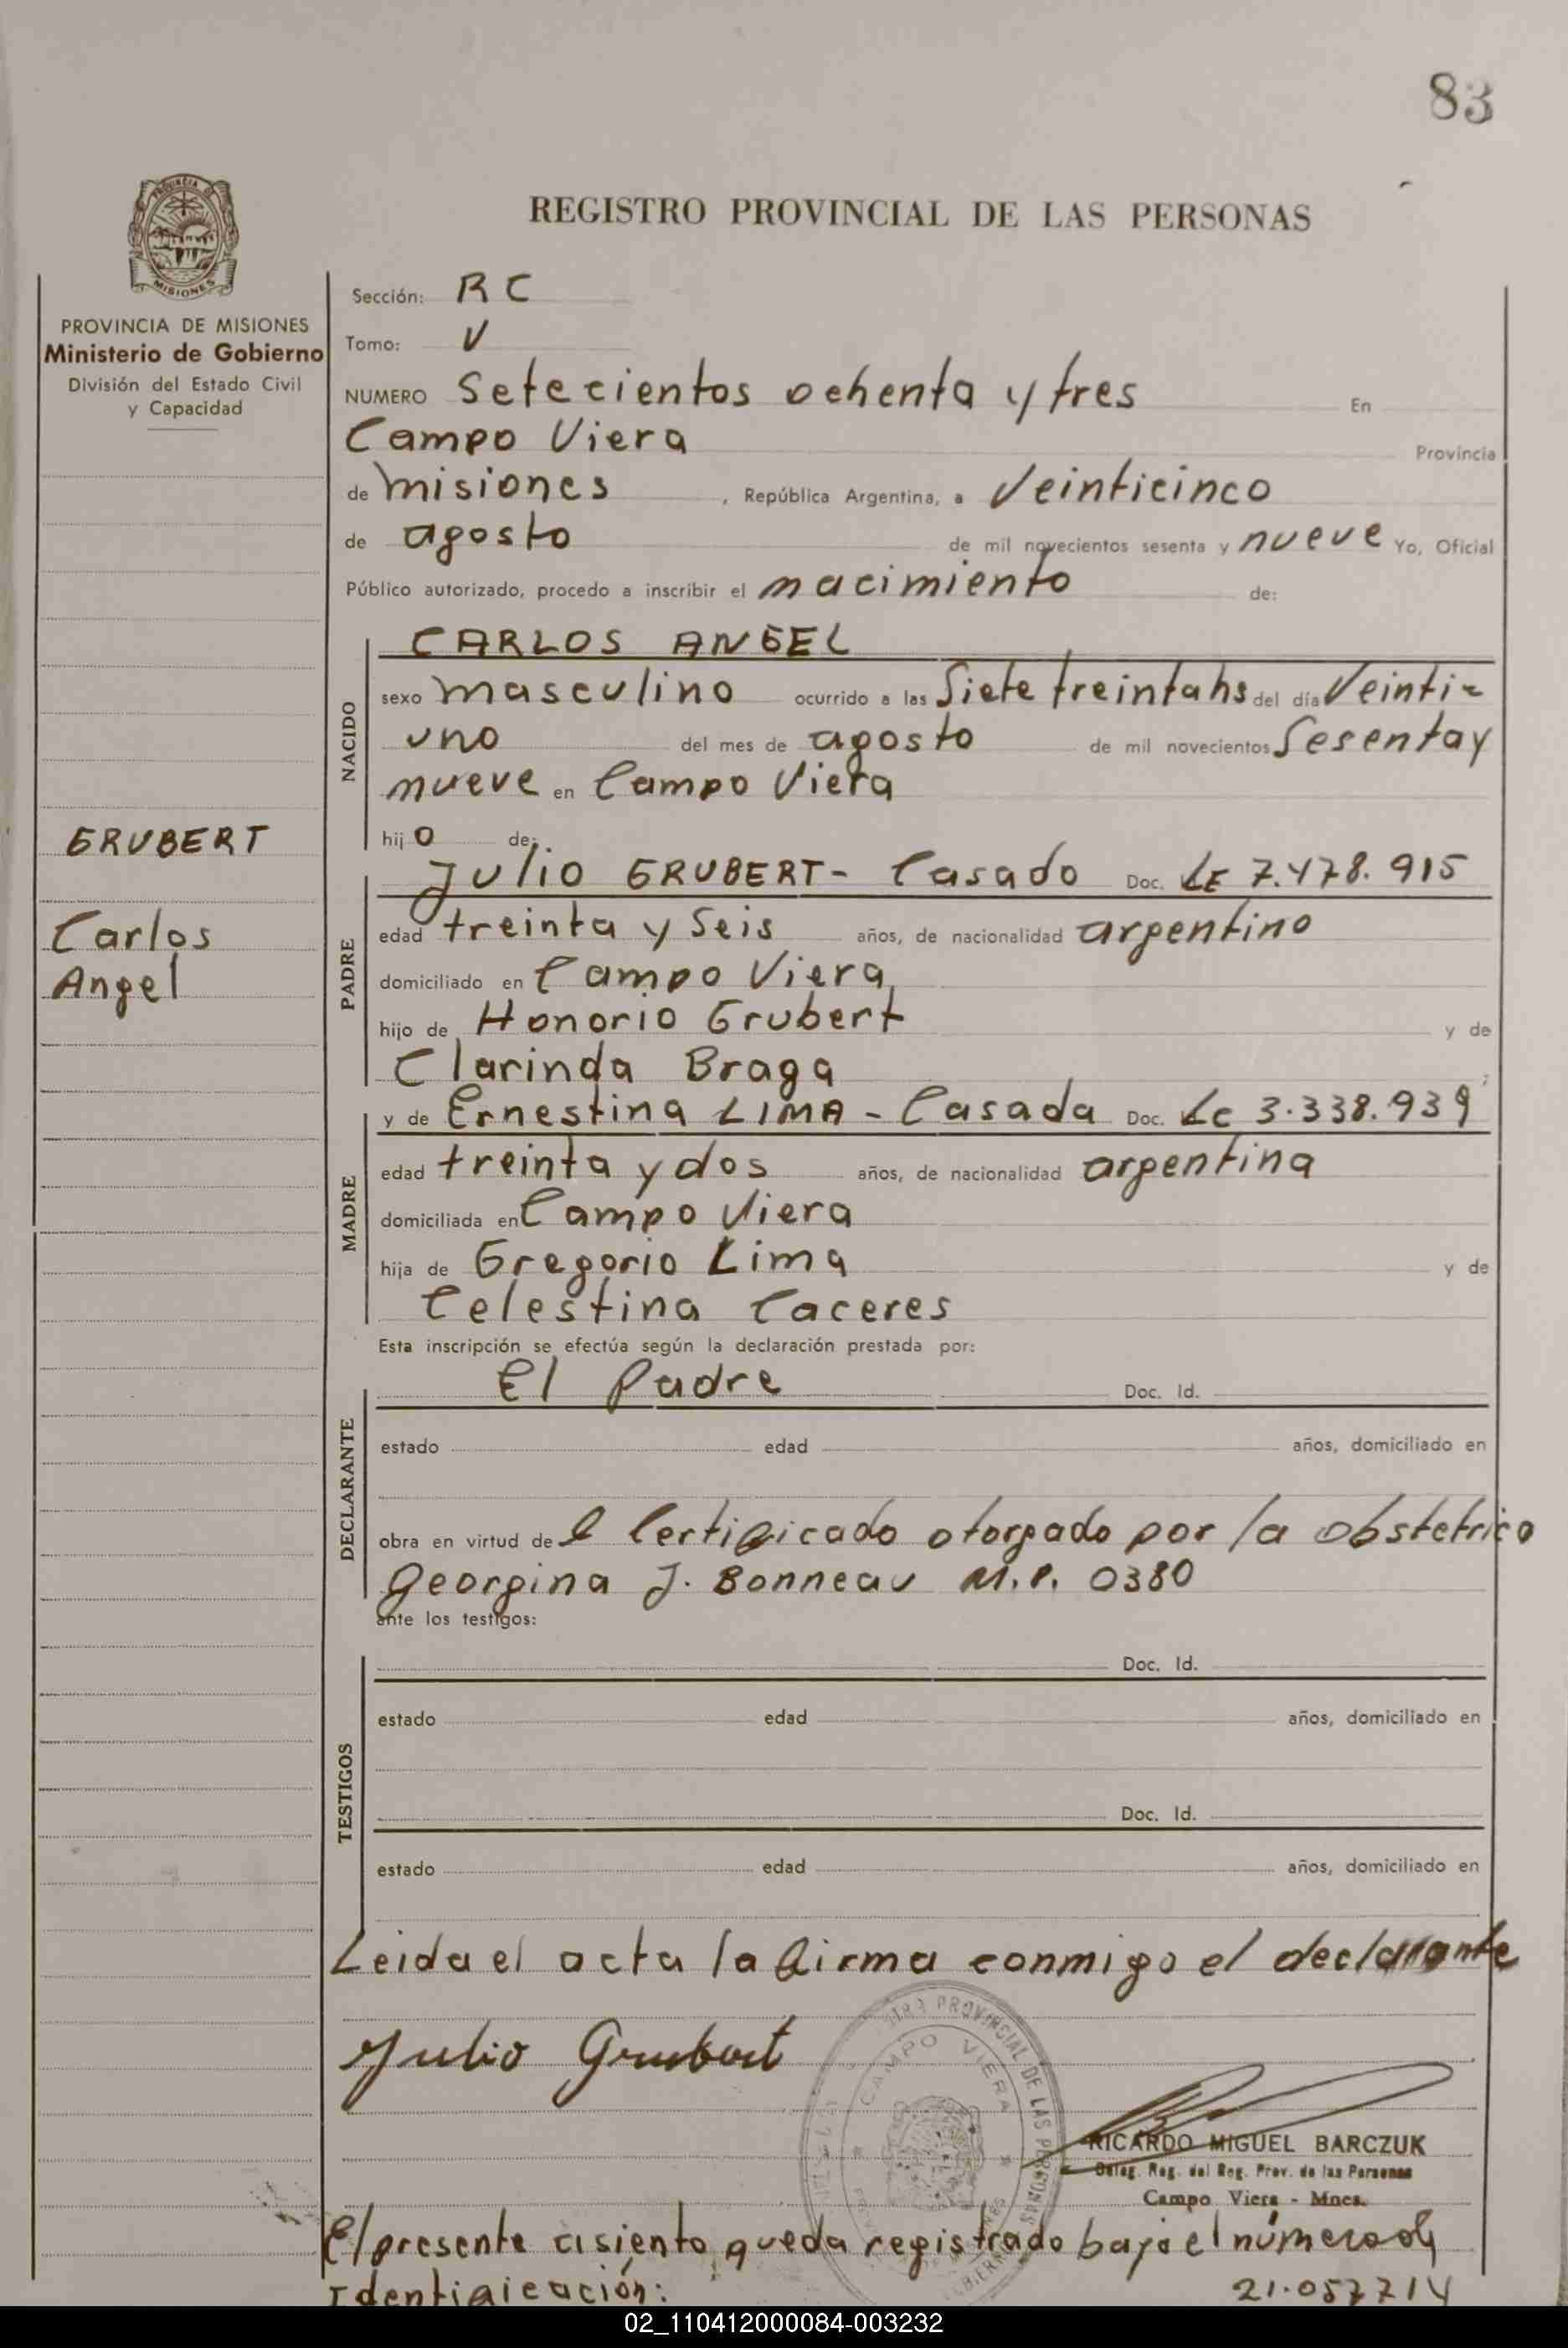 83
REGISTRO PROVINCIAL DE LAS PERSONAS
MISIONES
PROVINCIA DE MISIONES
Ministerio de Gobierno
División del Estado Civil
y Capacidad
GRUBERT
Carlos
Angel
Sección: RC
Tomo: V
NUMERO Setecientos ochenta y tres En
Campo Viera Provincia
de misiones, República Argentina, a Veinticinco
de agosto de mil novecientos sesenta y nueve Yo, Oficial
Público autorizado, procedo a inscribir el nacimiento de:
NACIDO
CARLOS ANGEL
sexo masculino ocurrido a las Siete treinta hs del día Veinti-
uno del mes de agosto de mil novecientos Sesenta y
nueve en Campo Viera
hijo de:
PADRE
Julio GRUBERT- Casado Doc. LE 7.478.915
edad treinta y Seis años, de nacionalidad argentino
domiciliado en Campo Viera
hijo de Honorio Grubert y de
Clarinda Braga
MADRE
y de Ernestina LIMA - Casada Doc. LC 3.338.939
edad treinta y dos años, de nacionalidad argentina
domiciliada en Campo Viera
hija de Gregorio Lima y de
Celestina Caceres
Esta inscripción se efectúa según la declaración prestada por:
DECLARANTE
El Padre Doc. Id.
estado edad años, domiciliado en
obra en virtud de l Certificado otorgado por la obstetrica
Georgina J. Bonneau M.P. 0380
ante los testigos:
TESTIGOS
Doc. Id.
estado edad años, domiciliado en
Doc. Id.
estado edad años, domiciliado en
Leida el acta la firma conmigo el declarante
Julio Grubert
PROVINCIAL DE LAS PERSONAS
CAMPO VIERA
RICARDO MIGUEL BARCZUK
Deleg. Reg. del Reg. Prov. de las Personas
Campo Viera - Mnes.
El presente asiento queda registrado bajo el número de
Identificación: 21.057714
02_110412000084-003232